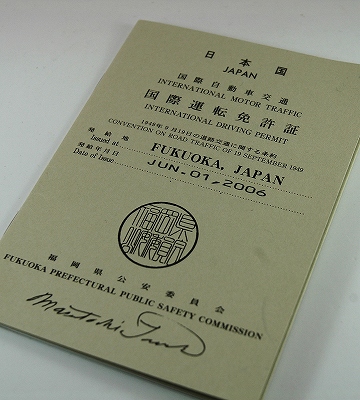 日本国
JAPAN
国際自動車交通
INTERNATIONAL MOTOR TRAFFIC
国際運転免許証
INTERNATIONAL DRIVING PERMIT
1949年9月19日の道路交通に関する条約
CONVENTION ON ROAD TRAFFIC OF 19 SEPTEMBER 1949
発給地
Issued at FUKUOKA, JAPAN
発給年月日
Date of Issue JUN.01/2006
福岡県公安委員会
FUKUOKA PREFECTURAL PUBLIC SAFETY COMMISSION